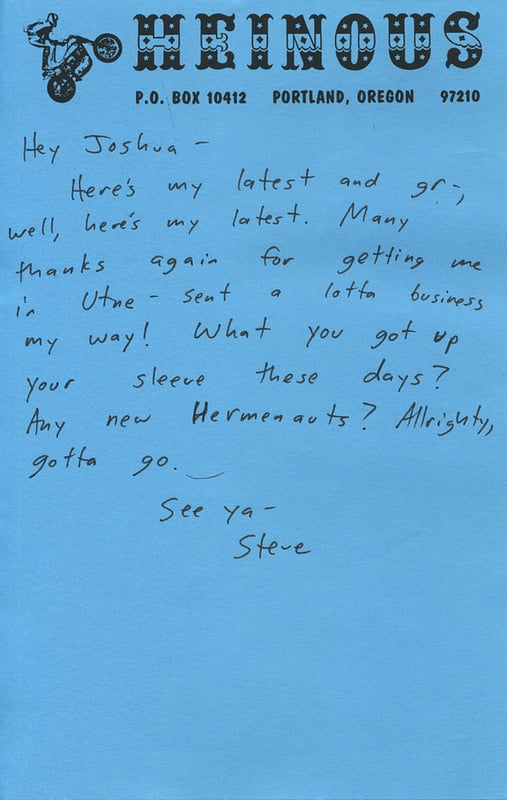 HEINOUS
P.O. BOX 10412 PORTLAND, OREGON 97210
Hey Joshua -
Here's my latest and gr-,
well, here's my latest. Many
thanks again for getting me
in Utne - sent a lotta business
my way! What you got up
your sleeve these days?
Any new Hermenauts? Allrighty,
gotta go.
See ya -
Steve